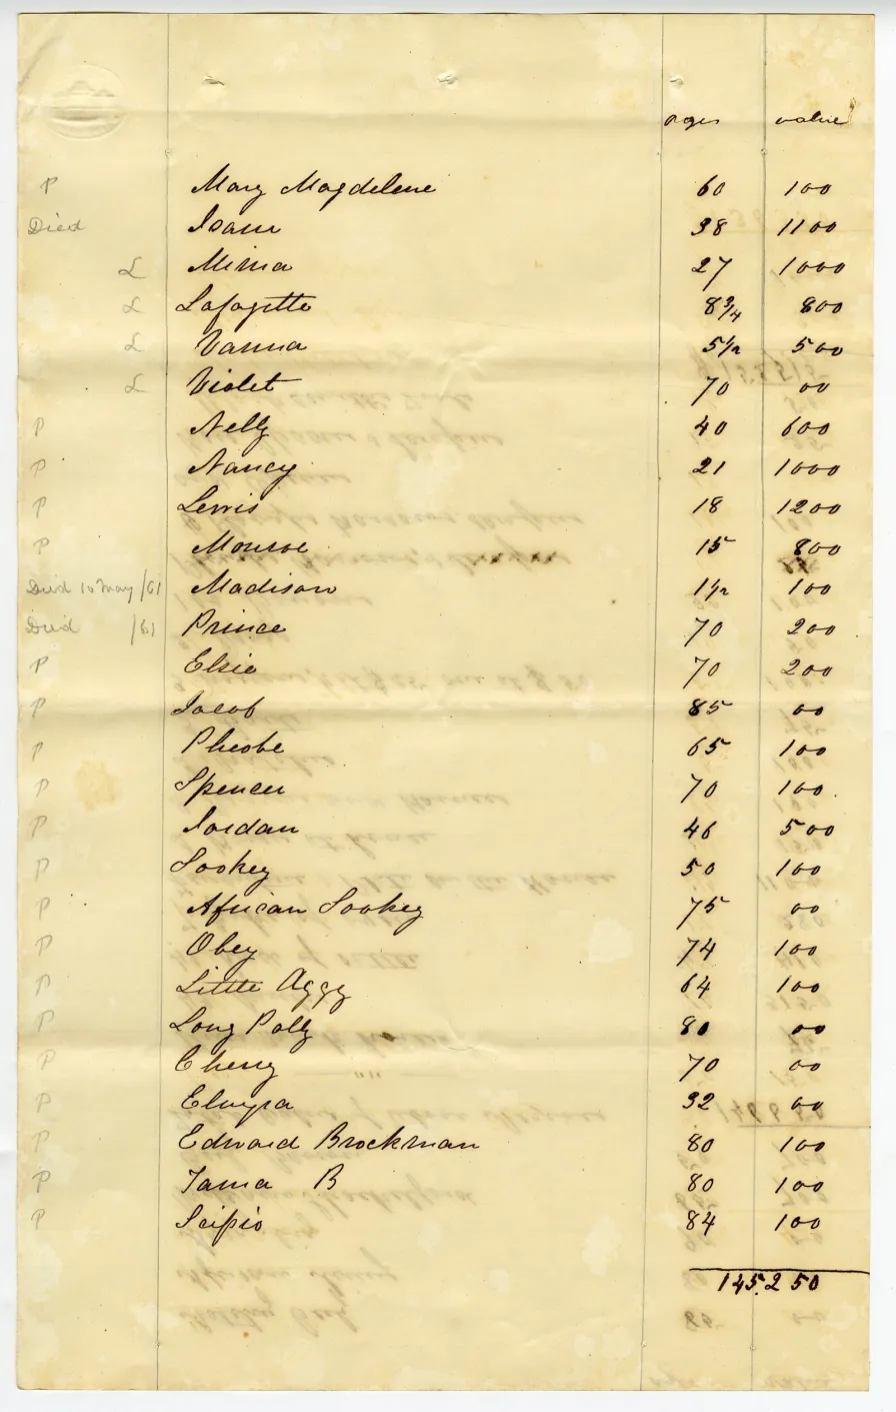 ages value
P Mary Magdelene 60 100
Died Isam 38 1100
L Mima 27 1000
L Lafayette 8 3/4 800
L Vanna 5 1/2 500
L Violet 70 00
P Nelly 40 600
P Nancy 21 1000
P Lewis 18 1200
P Monroe 15 800
Died 10 May /61 Madison 1 1/2 100
Died /61 Prince 70 200
P Elsie 70 200
P Jacob 85 00
P Pheobe 65 100
P Spencer 70 100
P Jordan 46 500
P Sookey 50 100
P African Sookey 75 00
P Obey 74 100
P Little Aggy 64 100
P Long Polly 80 00
P Cheny 70 00
P 32 00
P Edward Brockman 80 100
P Tama B 80 100
P Scipio 84 100
145.250